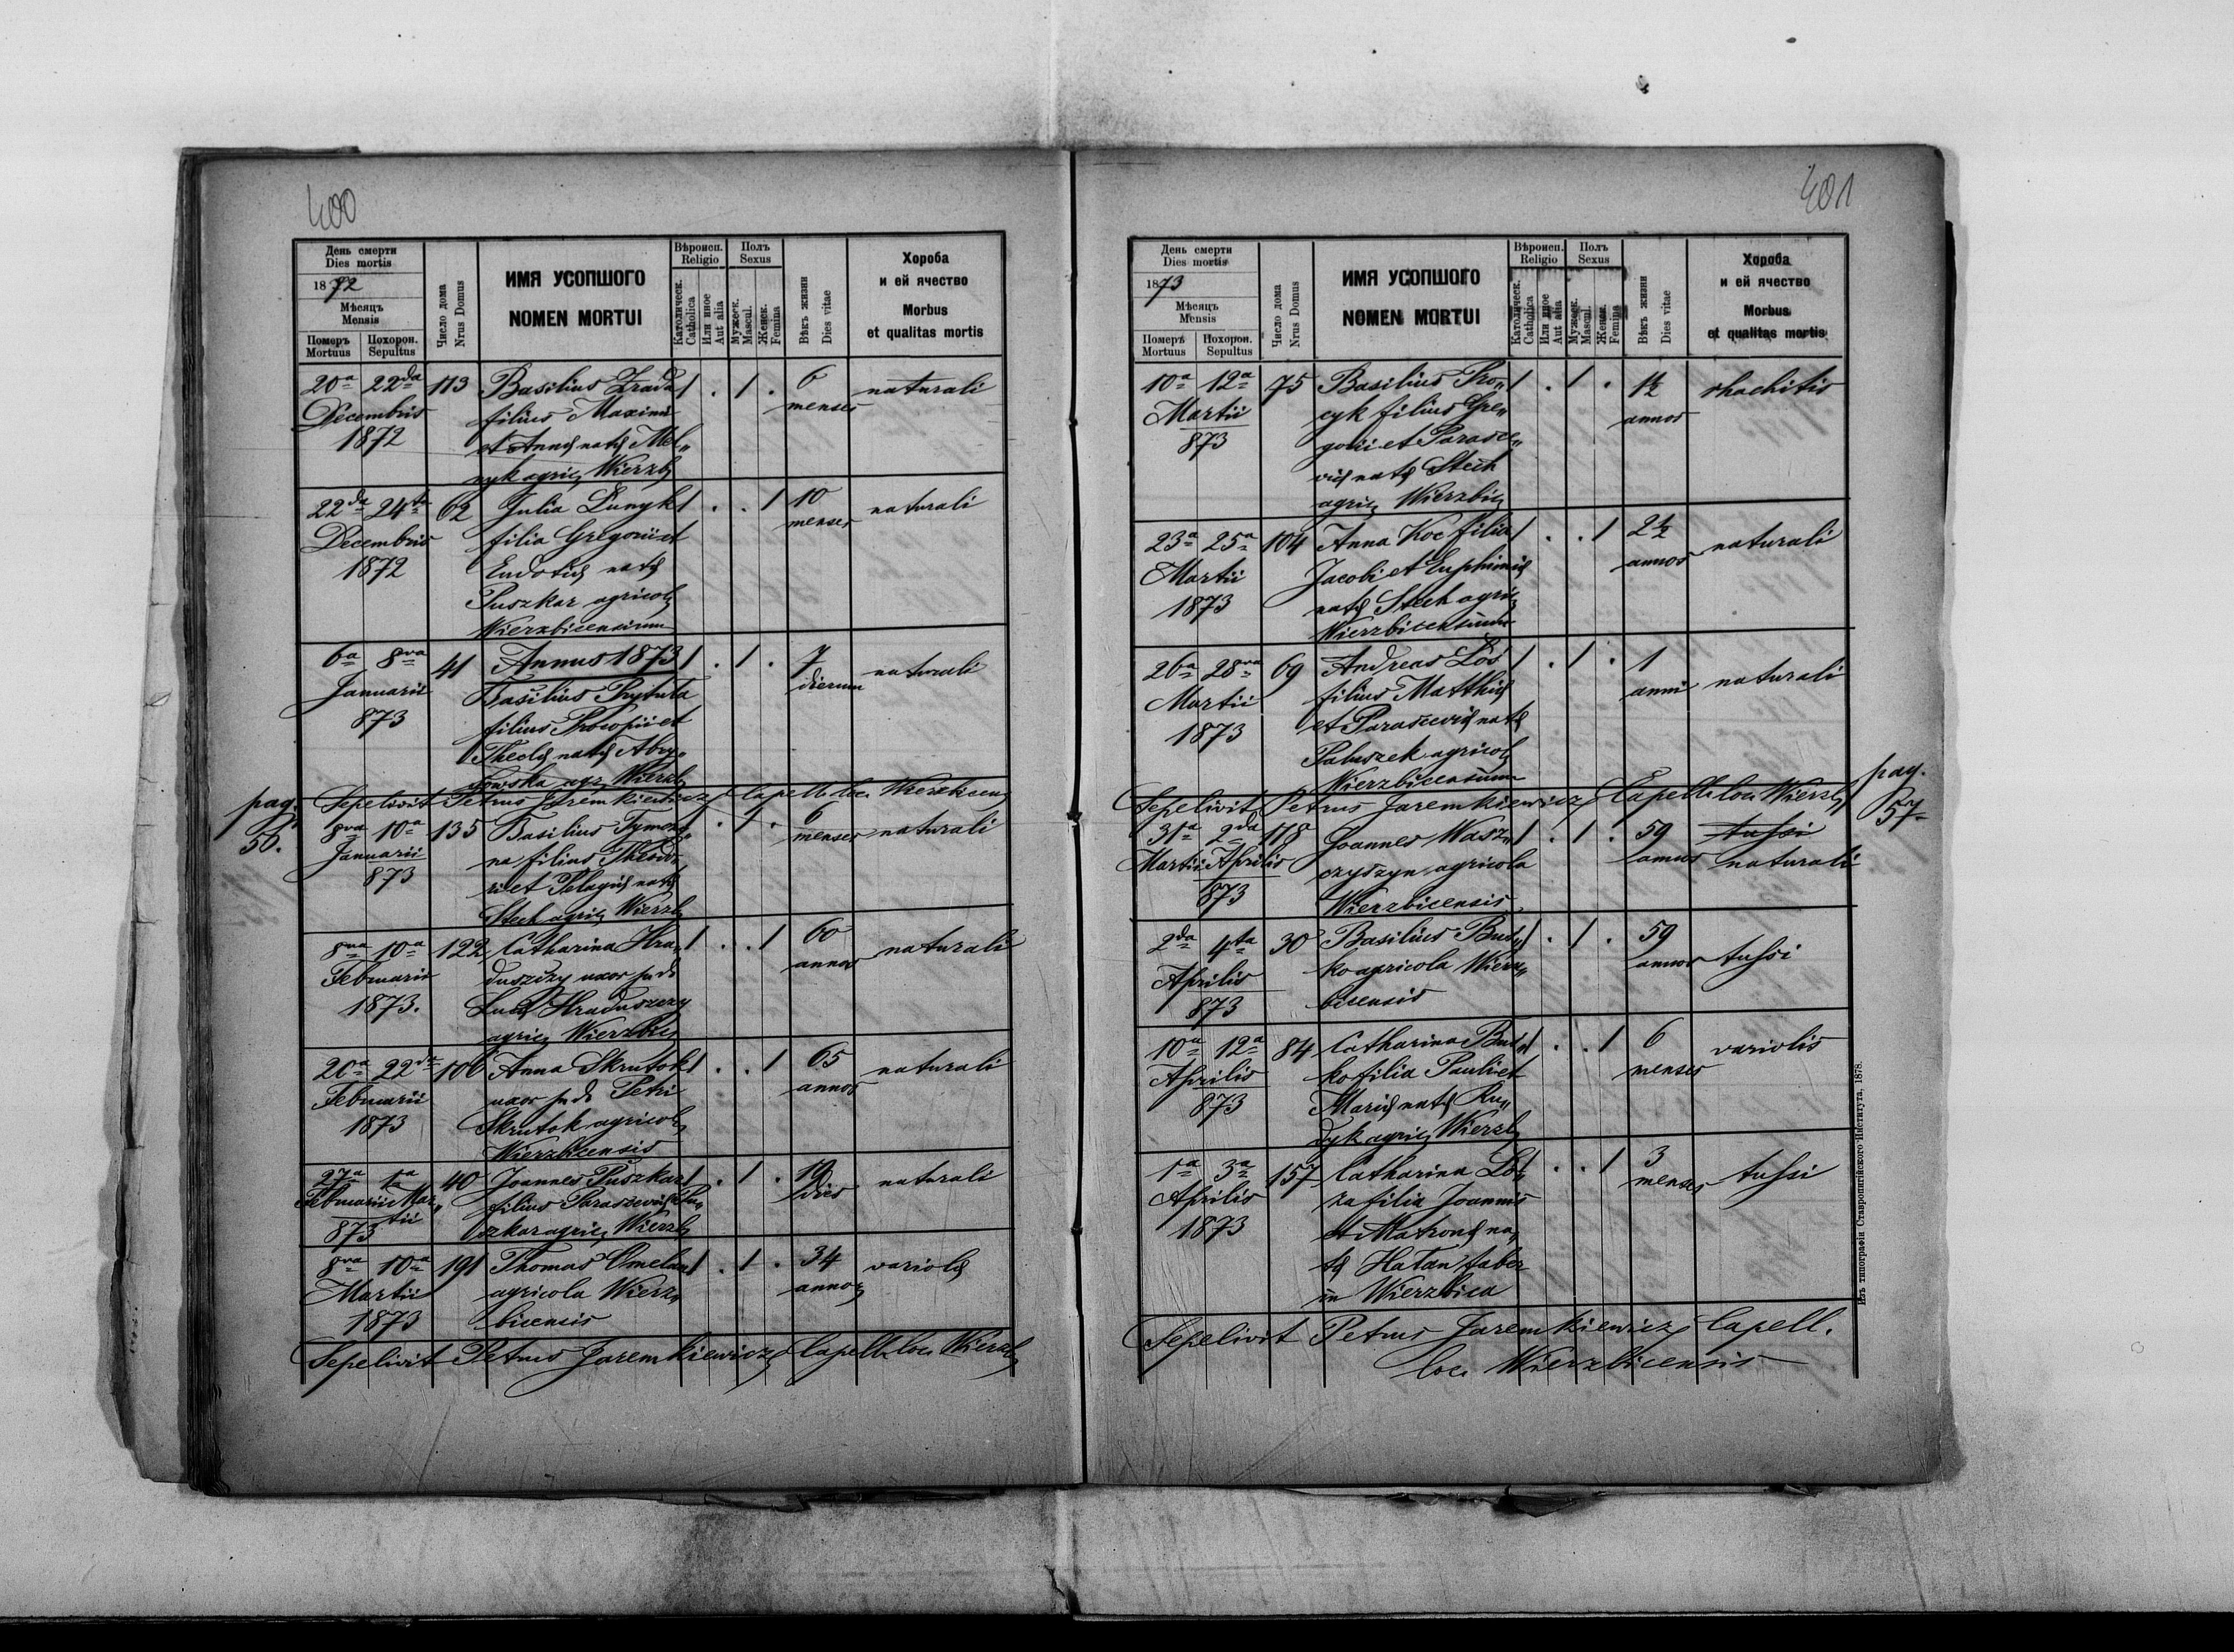 400
День смерти
Dies mortis
1872
Мѣсяцъ
Mensis
Померъ
Mortuus
Похорон.
Sepultus
Число дома
Nrus Domus
ИМЯ УСОПШОГО
NOMEN MORTUI
Вѣроисп.
Religio
Католическ.
Catholica
Или иное
Aut alia
Полъ
Sexus
Мужеск.
Mascul.
Женск.
Femina
Вѣкъ жизни
Dies vitae
Хороба
и ей ячество
Morbus
et qualitas mortis
20a 22da 113 Basilius Zrada 1 . 1 . 6 naturali
Decembris filius Maximi menses
1872 et Annæ natæ Mel„
nyk agric. Wierzb.
22da 24ta 62 Julia Dunyk 1 . . 1 10 naturali
Decembris filia Gregorii et menses
1872 Eudotiæ natæ
Puszkar agricol.
Wierzbicensium
6a 8va 41 Annus 1873 1 . 1 . 7 naturali
Januarii Basilius Prytuła dierum
873 filius Procopii et
Theclæ natæ
agr. Wierzb.
Sepelivit Petrus Jaremkiewicz Capell. loc. Wierzbicen.
pag. 56.
8va 10a 135 Basilius Tymoch„ 1 . 1 . 6 naturali
Januarii na filius Theodo„ menses
873 ri et Pelagiæ natæ
Stech agric. Wierzb.
8va 10a 122 Catharina Hra„ 1 . . 1 60 naturali
Februarii duszczy uxor pd. annos
1873. Lucæ Hraduszczy
agric. Wierzbic.
20a 22da 106 Anna Skrutok 1 . . 1 65 naturali
Februarii uxor pd. Petri annos
1873 Skrutok agricol.
Wierzbicensis
27a 1a 40 Joannes Puszkar 1 . 1 . 19 naturali
Februarii Mar„ filius Paraszeviæ Pu„ dies
873 tii szkar agric. Wierzb.
8va 10a 191 Thomas Omelan 1 . 1 . 34 variolæ
Martii agricola Wierz„ annor.
1873 bicensis
Sepelivit Petrus Jaremkiewicz Capell. loc. Wierzb.
401
День смерти
Dies mortis
1873
Мѣсяцъ
Mensis
Померъ
Mortuus
Похорон.
Sepultus
Число дома
Nrus Domus
ИМЯ УСОПШОГО
NOMEN MORTUI
Вѣроисп.
Religio
Католическ.
Catholica
Или иное
Aut alia
Полъ
Sexus
Мужеск.
Mascul.
Женск.
Femina
Вѣкъ жизни
Dies vitae
Хороба
и ей ячество
Morbus
et qualitas mortis
10a 12a 75 Basilius Pro„ 1 . 1 . 1½ rhachitis
Martii cyk filius Gre„ annos
873 gorii et Parasce„
viæ natæ Stech
agric. Wierzbic.
23a 25a 104 Anna Koc filia 1 . . 1 2½ naturali
Martii Jacobi et Euphimiæ annos
1873 natæ Stech agric.
Wierzbicensium
26a 28va 69 Andreas Łoś 1 . 1 . 1 naturali
Martii filius Matthiæ anni
1873 et Parasceviæ natæ
Paluszek agricol.
Wierzbicensium
Sepelivit Petrus Jaremkiewicz Capell. loc. Wierzb.
pag. 57
31a 2da 178 Joannes Wasz„ 1 . 1 . 59 tussi
Martii Aprilis czyszyn agricola annos naturali
873 Wierzbicensis
2da 4ta 30 Basilius But„ 1 . 1 . 59 tussi
Aprilis ko agricola Wierz„ annos
873 bicensis
10a 12a 84 Catharina But„ 1 . . 1 6 variolis
Aprilis ko filia Pauli et menses
873 Mariæ natæ Ru„
dyk agric. Wierzb.
1a 3a 157 Catharina Ło„ 1 . . 1 3 tussi
Aprilis za filia Joannis menses
1873 et Matronæ na„
tæ Hatan faber
in Wierzbica
Sepelivit Petrus Jaremkiewicz Capell.
loc. Wierzbicensis
Изъ типографіи Ставропигійского Института, 1878.